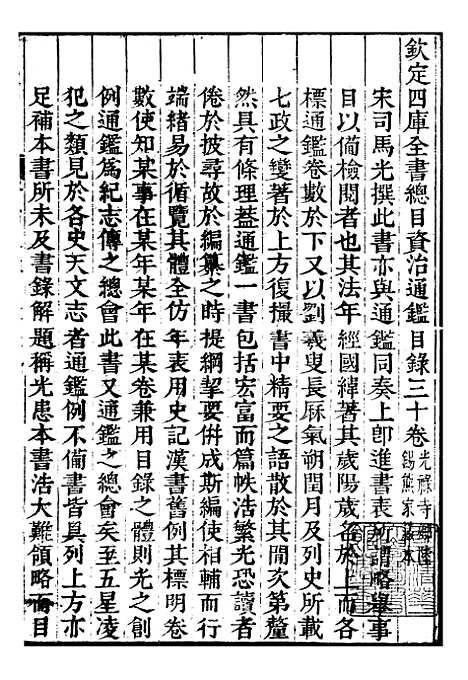 欽定四庫全書總目資治通鑑目錄三十卷光祿寺卿陸錫熊家藏本
宋司馬光撰此書亦與通鑑同奏上卽進書表所謂略舉事
目以備檢閱者也其法年經國緯著其歲陽歲名於上而各
標通鑑卷數於下又以劉羲叟長厤氣朔閏月及列史所載
七政之變著於上方復撮書中精要之語散於其閒次第釐
然具有條理葢通鑑一書包括宏富而篇帙浩繁光恐讀者
倦於披尋故於編纂之時提綱挈要倂成斯編使相輔而行
端緒易於循覽其體全仿年表用史記漢書舊例其標明卷
數使知某事在某年某年在某卷兼用目錄之體則光之創
例通鑑爲紀志傳之總會此書又通鑑之總會矣至五星凌
犯之類見於各史天文志者通鑑例不備書皆具列上方亦
足補本書所未及書錄解題稱光患本書浩大難領略而目